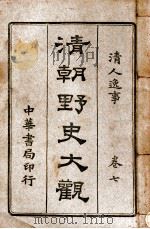 清人逸事　卷七
清朝野史大觀
中華書局印行